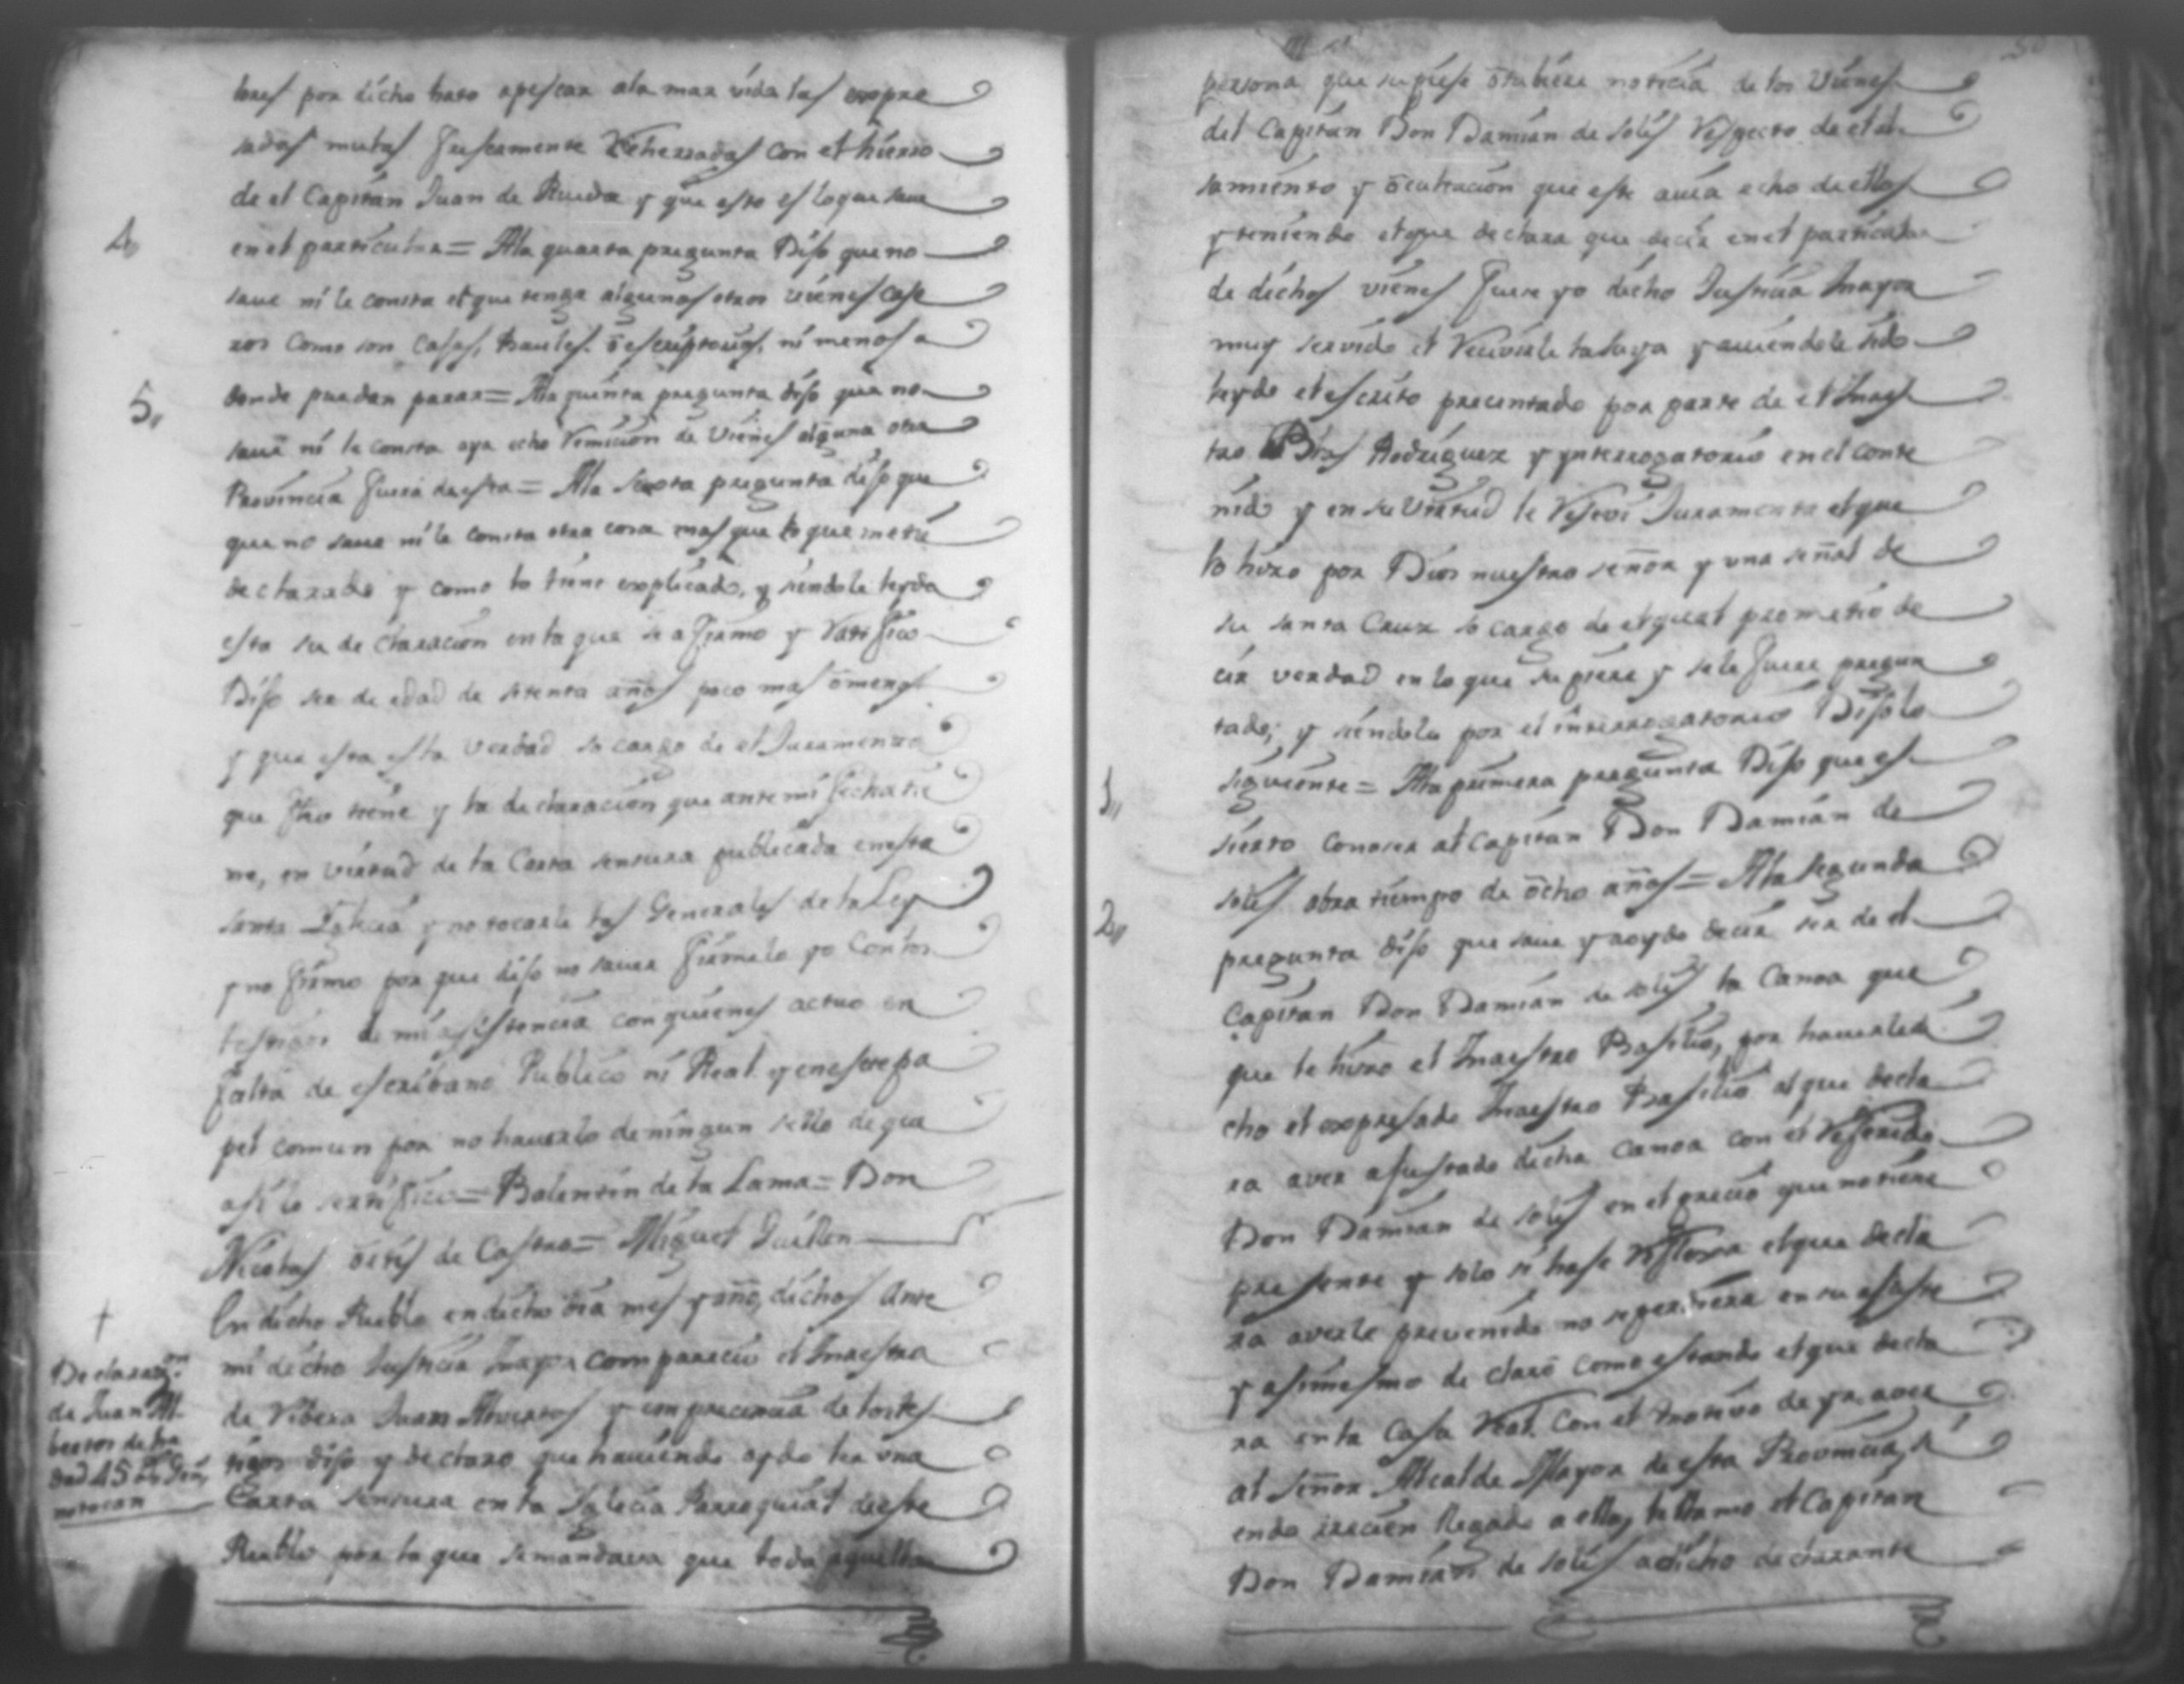 tores por dicho hato apescar ala mar vido las expre
sadas mulas fuscamente Reherradas con el hierro
de el Capitan Juan de Rueda y que esto es loque save
4,, en el particular = Ala quarta pregunta Dijo que no
save ni le consta el que tenga algunos otros vienes case
ros como son casas, baules, õ escriptorios, ni menos a
5,, donde puedan parar = Ala quinta pregunta dijo que no
save ni le consta aya echo Remicion de vienes alguna otra
Provincia fuera de esta = Ala Sexta pregunta dijo que
que no save ni le consta otra cosa mas que lo que metié
declarado y como lo tiene explicado, y siendole leyda
esta su declaracion en la que se afirmo y Ratifico
Dijo ser de edad de setenta años poco mas õ menos
y que esta es la verdad so cargo de el Juramento
que fho tiene y la declaracion que ante mi fecha tie
ne, en virtud de la Carta sensura publicada en esta
santa Iglecia y no tocarle las Generales de la Ley
y no firmo por que dijo no saver firmelo yo Con los
testigos de mi asistencia con quienes actuo en
falta de escribano Publico ni Real y en este pa
pel comun por no haverlo de ningun sello de que
asi lo sertifico = Balentin de la Lama = Don
Nicolas õrtis de Castro = Miguel Guillen
En dicho Pueblo en dicho dia mes y año, dichos Ante
mi dicho Justicia Mayor comparecio el Maestro
de Ribera Juan Alvertos y em precencia de los tes
tigos dijo y declaro que haviendo oydo leer una
Carta sensura en la Iglecia Parroquial de este
Pueblo por la que se mandava que toda aquella
†
Declaraçon
de Juan Al-
bertos de he
dad 45 as Gens
no tocan
50
persona que supiese õ tubiese noticia de los Vienes
del Capitan Don Damian de Solis Respecto de el al
samiento y õcultacion que este avia echo de ellos
y teniendo el que declara que decir en el particular
de dichos vienes fuese yo dicho Justicia Mayor
muy servido el Recivirle la suya y aviendole sido
leydo el escrito precentado por parte de el Maes
tro Blas Rodriguez y ynterrogatorio en el conte
nido y en su Virtud le Resevi Juramento el que
lo hizo por Dios nuestro señor y una señal de
su santa Cruz so cargo de el qual prometio de
cir verdad en lo que supiere y se le fuere pregun
tado; y siendolo por el interrogatorio Dijo lo
1,, siguiente = Ala primera pregunta Dijo que es
sierto conoser al Capitan Don Damian de
solis obra tiempo de õcho años = Ala segunda
2,, pregunta dijo que save y a oydo decir ser de el
Capitan Don Damian de solis la Canoa que
que le hizo el Maestro Basilio, por haverle di
cho el expresado Maestro Basilio al que decla
ra aver ajustado dicha canoa con el Referido
Don Damian de solis en el precio que no tiene
presente y solo si hase Reflexa el que decla
ra averle prevenido no se perdiera en su ajuste
y asimesmo declarõ como estando el que decla
ra en la Casa Real con el motivo de yr a ver
al señor Alcalde Mayor de esta Provincia, si
endo recien llegado a ella, le llamo el Capitan
Don Damian de solis a dicho declarante